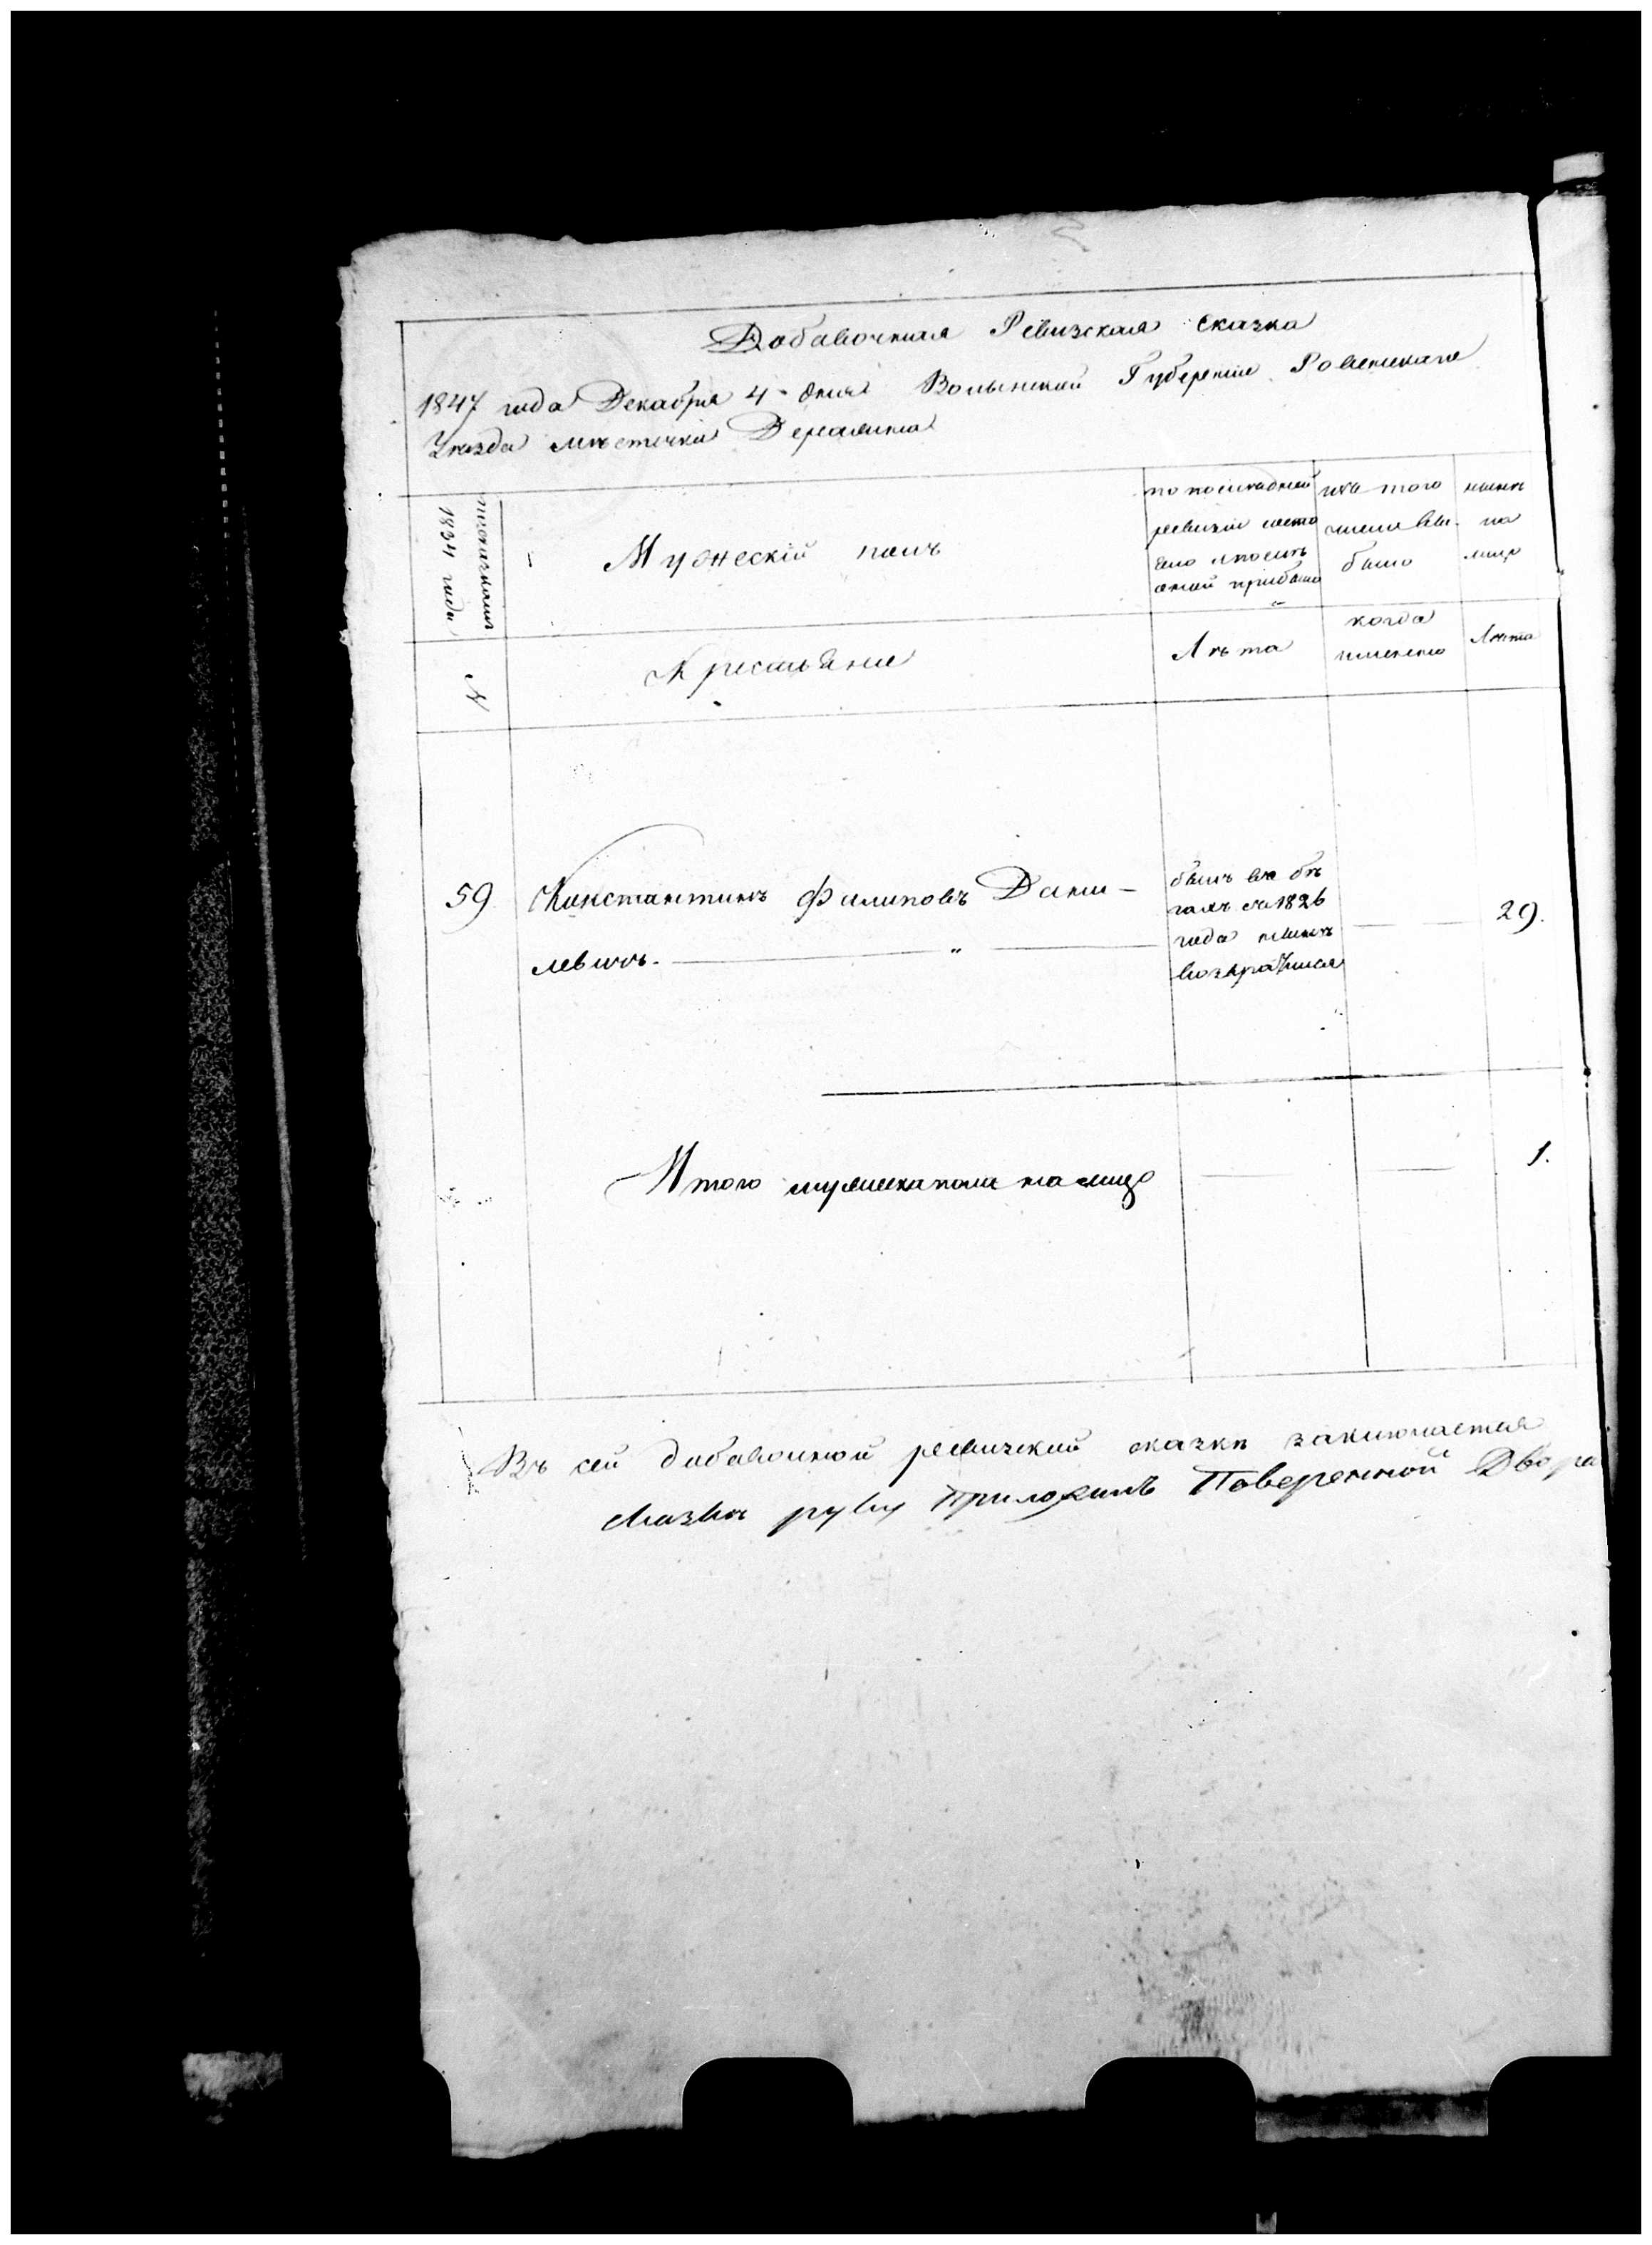 Добавочная Ревизская Сказка
1847 года Декабря 4 дня Волынской Губерніи Ровенскаго
Уезда местечка Деражна
по сказкамъ
1834 года
Мужескій полъ
по последней
ревизіи состо
яло и после
оной прибыло
изъ того
числа вы-
было
ныне
на
лицо
N
Крестьяне
Лета
когда
именно
Лета
59
Константинъ Филиповъ Дани-
левичъ.
былъ въ бе
гахъ съ 1826
года ныне
возвратился
29.
Итого мужеска пола на лицо
1.
Въ сей добавочной ревизской сказке заключается
сказке руку приложилъ Поверенной Двора